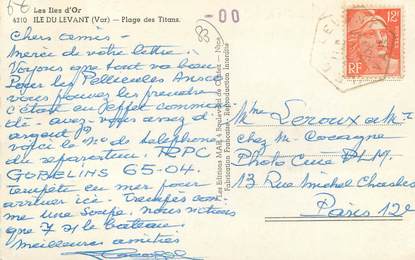 Les Iles d'Or
6210 ILE DU LEVANT (Var) - Plage des Titans.
-00
83
12F
RF
Chers amis -
Merci de votre lettre.
Voyons que tout va bien
Pour les Pellicules Ansco
vous pouvez les prendre
c'était en effet comman
dé - avez-vous assez d'
argent ?
voici le No de telephone
du reparateur. TRPC
GOBELINS 65-04.
Tempête en mer pour
arriver ici - Trempés com-
me une soupe, nous n'étions
que 7 sur le bateau.
Meilleures amitiés
Les Editions MAR, 4 Boulevard de - Nice
Fabrication Française. Reproduction Interdite
Mme Leroux
chez M. Cocagne
Photo Ciné P.L.M.
13 Rue Michel Chasles
Paris 12e